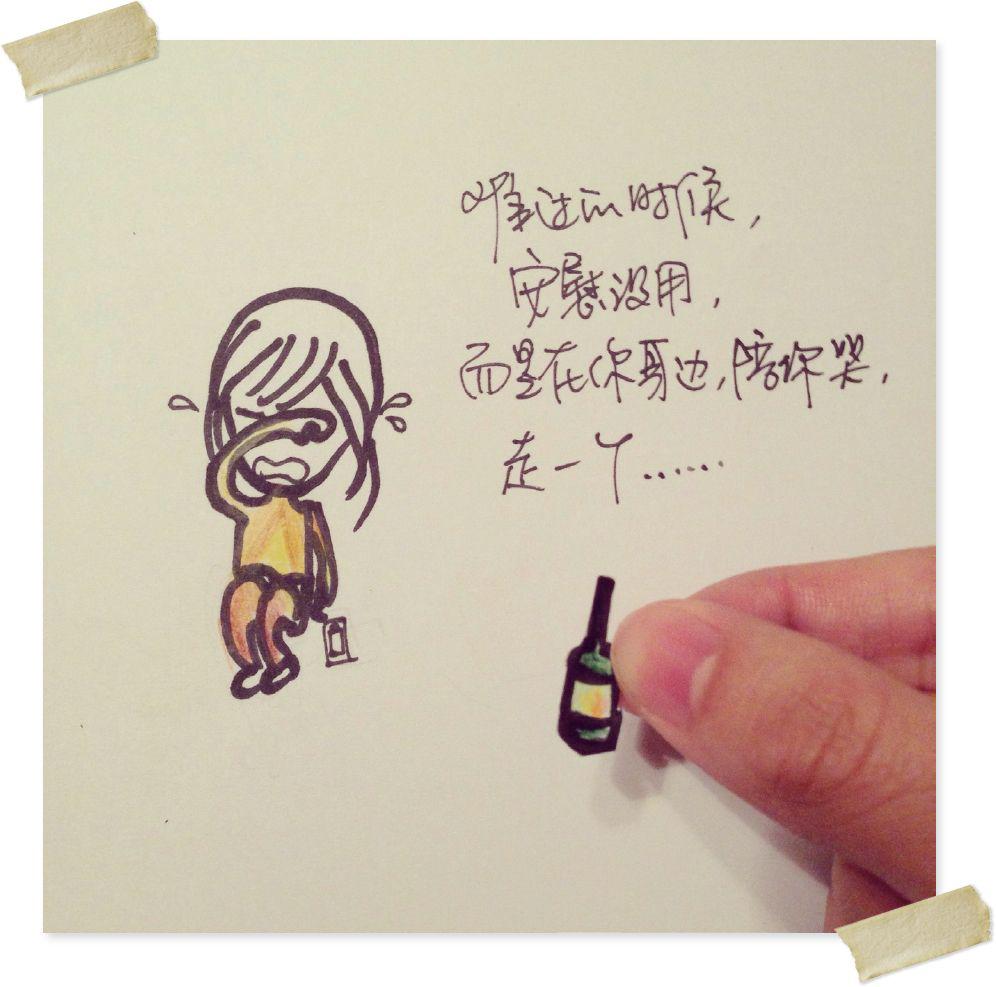 难过的时候,
安慰没用,
而是在你身边,陪你哭.
走一丫……